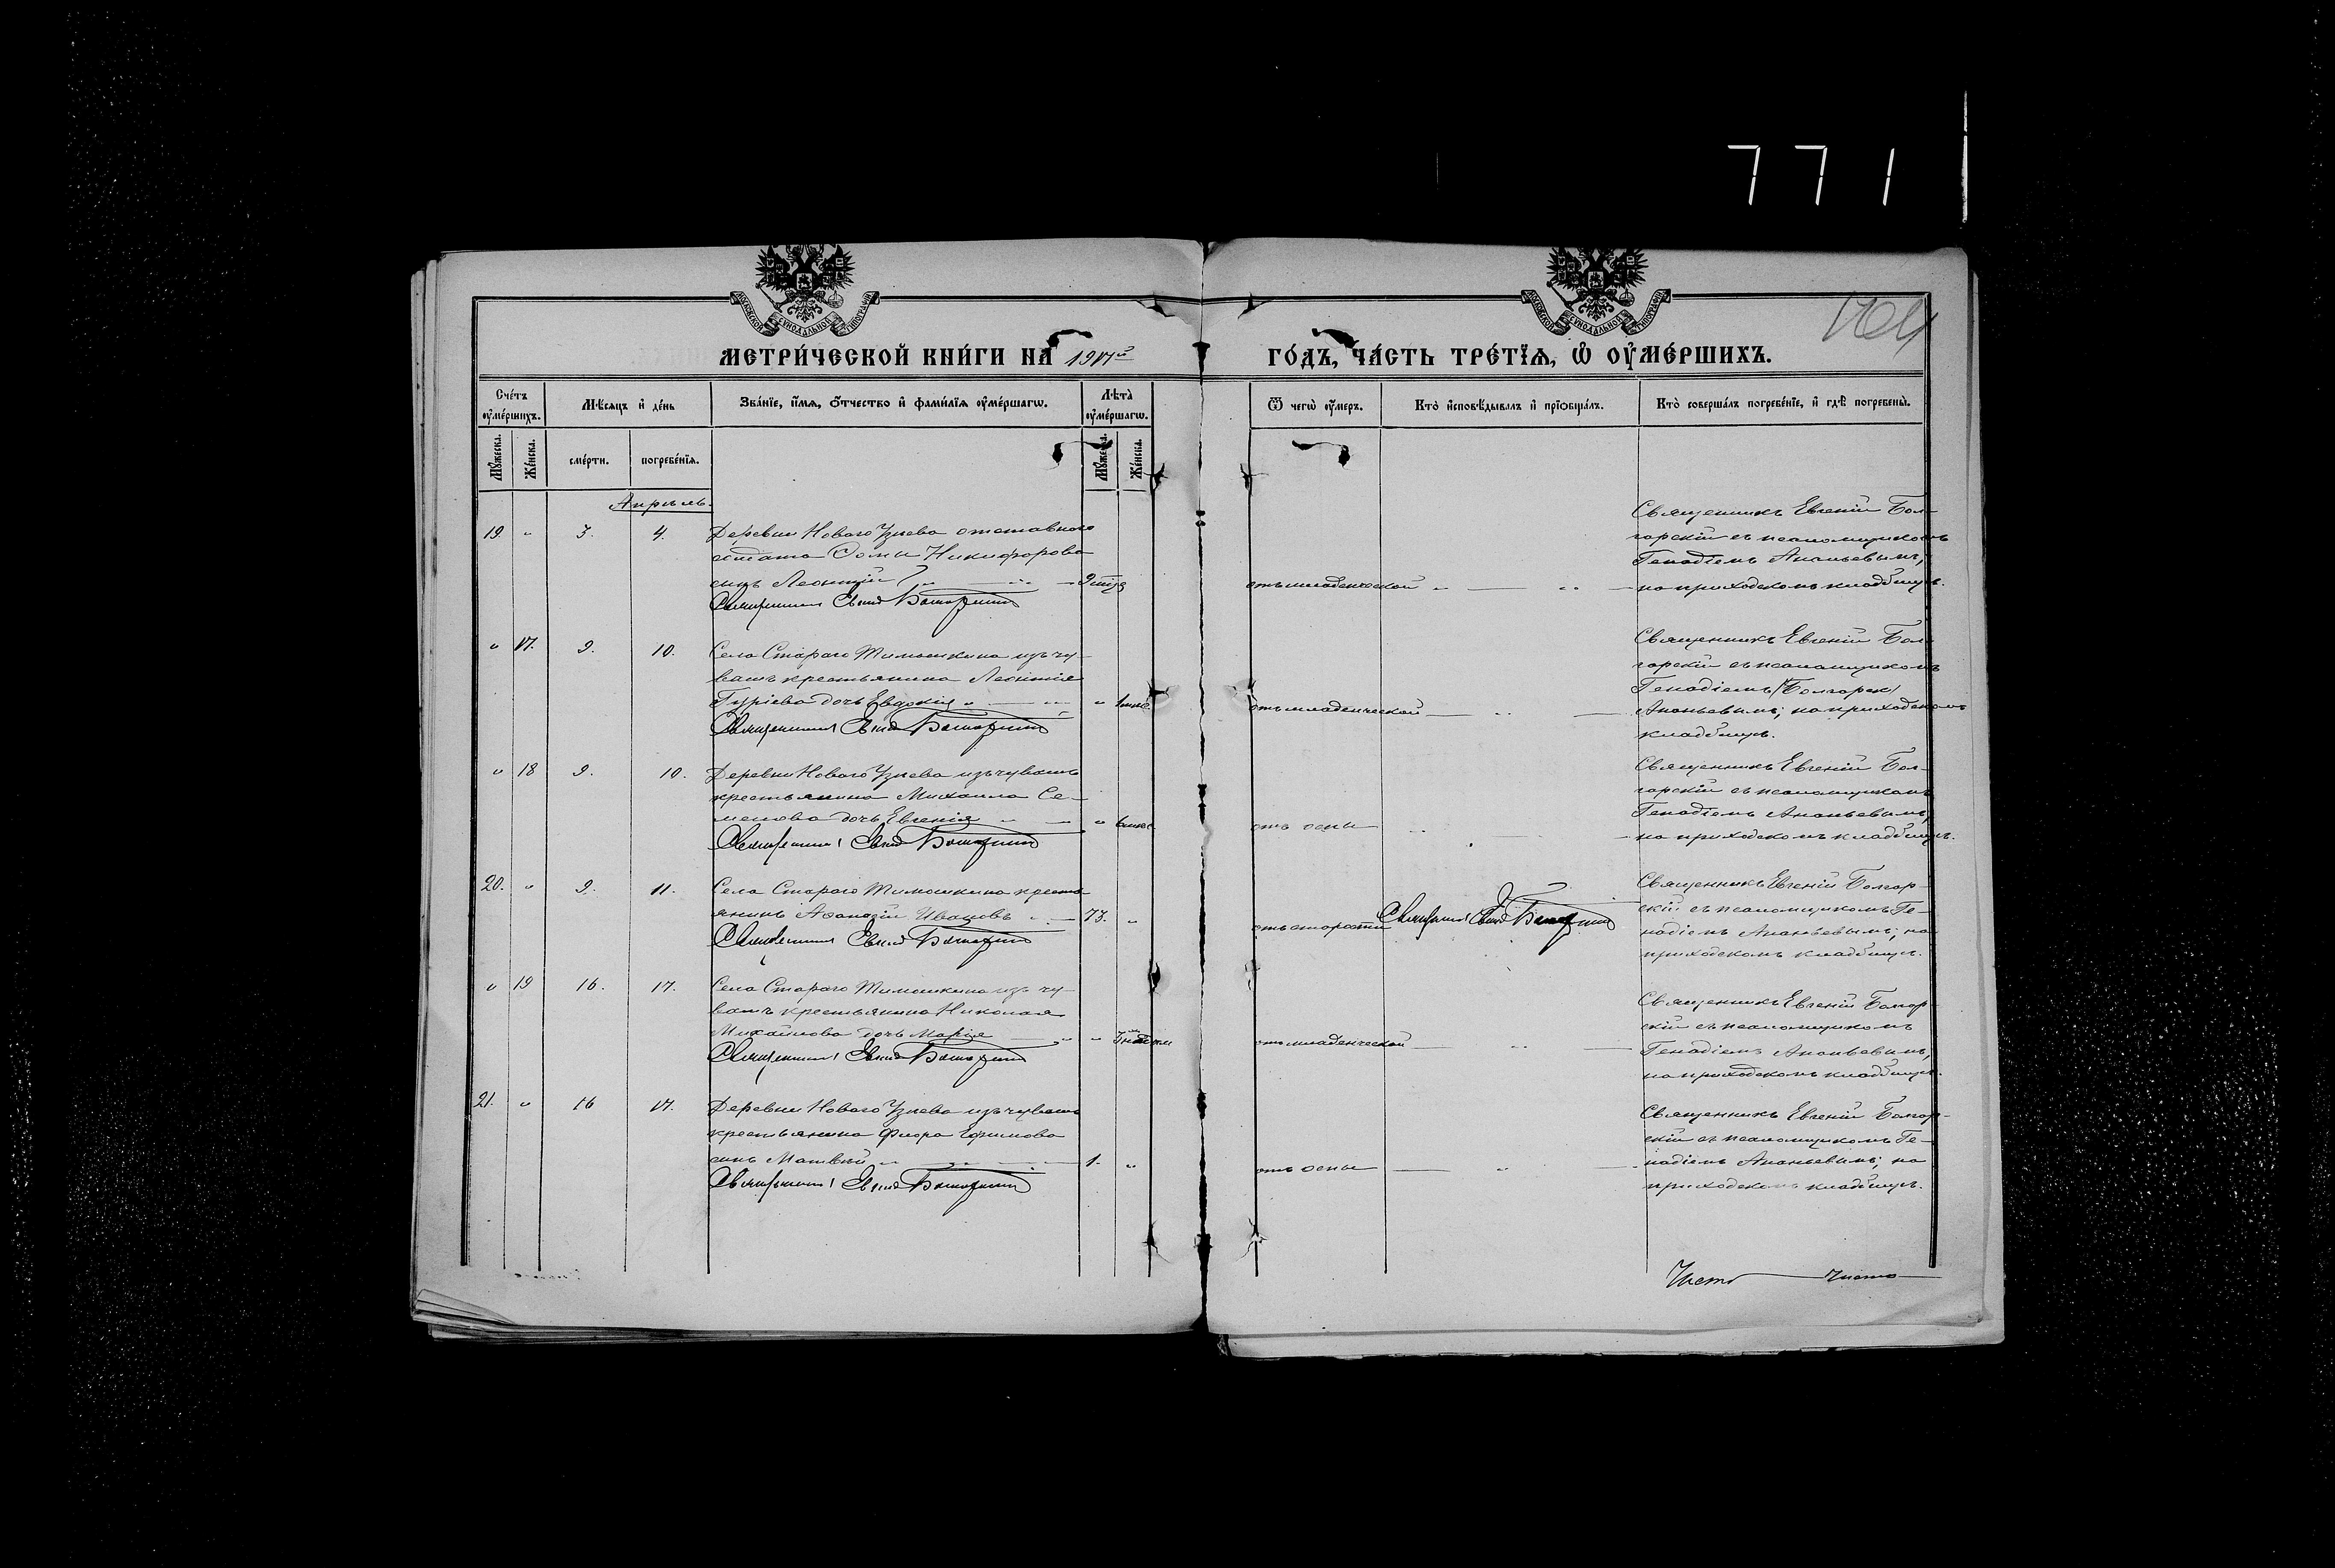 771
МОСКОВСКОЙ СѴНОДАЛЬНОЙ ТИПОГРАФІИ
МОСКОВСКОЙ СѴНОДАЛЬНОЙ ТИПОГРАФІИ
МЕТРИ́ЧЕСКОЙ КНИ́ГИ НА 1917й
ГО́ДЪ, ЧА́СТЬ ТРЕ́ТЇѦ, Ѡ҆ ОУ҆МЕ́РШИХЪ.
Сче́тъ оу҆ме́ршихъ.
Мѣ́сѧцъ и҆ де́нь
Зва́нїе, и҆́мѧ, ѻ҆́тчество и҆ фами́лїѧ оу҆ме́ршагѡ.
Лѣ́та оу҆ме́ршагѡ.
Ѿ чегѡ̀ оу҆́меръ.
Кто̀ и҆сповѣ́дывалъ и҆ прїѡбща́лъ.
Кто̀ соверша́лъ погребе́нїе, и҆ гдѣ̀ погребены̀.
Мꙋ́жеска.
Же́нска.
сме́рти.
погребе́нїѧ.
Мꙋ́жеска.
Же́нска.
Апрѣль.
19. " 3. 4.
Деревни Новаго Узеева отставного
солдата Ѳомы Никифорова
сынъ Леонтій
Священникъ Евгеній Болгарскій
отъ младенческой
Священникъ Евгеній Бол-
гарскій съ псаломщикомъ
Генадіемъ Ананьевымъ,
на приходскомъ кладбищѣ.
" 17. 9. 10.
Села Стараго Тимошкина изъ чу-
вашъ крестьянина Леонтія
Гуріева дочь Евдокія
" 1 мѣс
Священникъ Евгеній Болгарскій
отъ младенческой
Священникъ Евгеній Бол-
гарскій съ псаломщикомъ
Генадіемъ (Болгарск)
Ананьевымъ; на приходскомъ
кладбищѣ.
" 18 9. 10.
Деревни Новаго Узеева изъ чувашъ
крестьянина Михаила Се-
менова дочь Евгенія
" 6 мѣс
Священникъ Евгеній Болгарскій
отъ оспы
Священникъ Евгеній Бол-
гарскій съ псаломщикомъ
Генадіемъ Ананьевымъ,
на приходскомъ кладбищѣ.
20. " 9. 11.
Села Стараго Тимошкина кресть-
янинъ Аѳанасій Ивановъ
73. "
Священникъ Евгеній Болгарскій
отъ старости
Священникъ Евгеній Болгарскій
Священникъ Евгеній Болгар-
скій съ псаломщикомъ Ге-
надіемъ Ананьевымъ; на
приходскомъ кладбищѣ.
" 19 16. 17.
Села Стараго Тимошкина изъ чу-
вашъ крестьянина Николая
Михайлова дочь Марія
Священникъ Евгеній Болгарскій
отъ младенческой
Священникъ Евгеній Болгар-
скій съ псаломщикомъ
Генадіемъ Ананьевымъ,
на приходскомъ кладбищѣ.
21. " 16 17.
Деревни Новаго Узеева изъ чувашъ
крестьянина Флора Ефимова
сынъ Матвѣй
1. "
Священникъ Евгеній Болгарскій
отъ оспы
Священникъ Евгеній Болгар-
скій съ псаломщикомъ Ге-
надіемъ Ананьевымъ; на
приходскомъ кладбищѣ.
Чисто Чисто